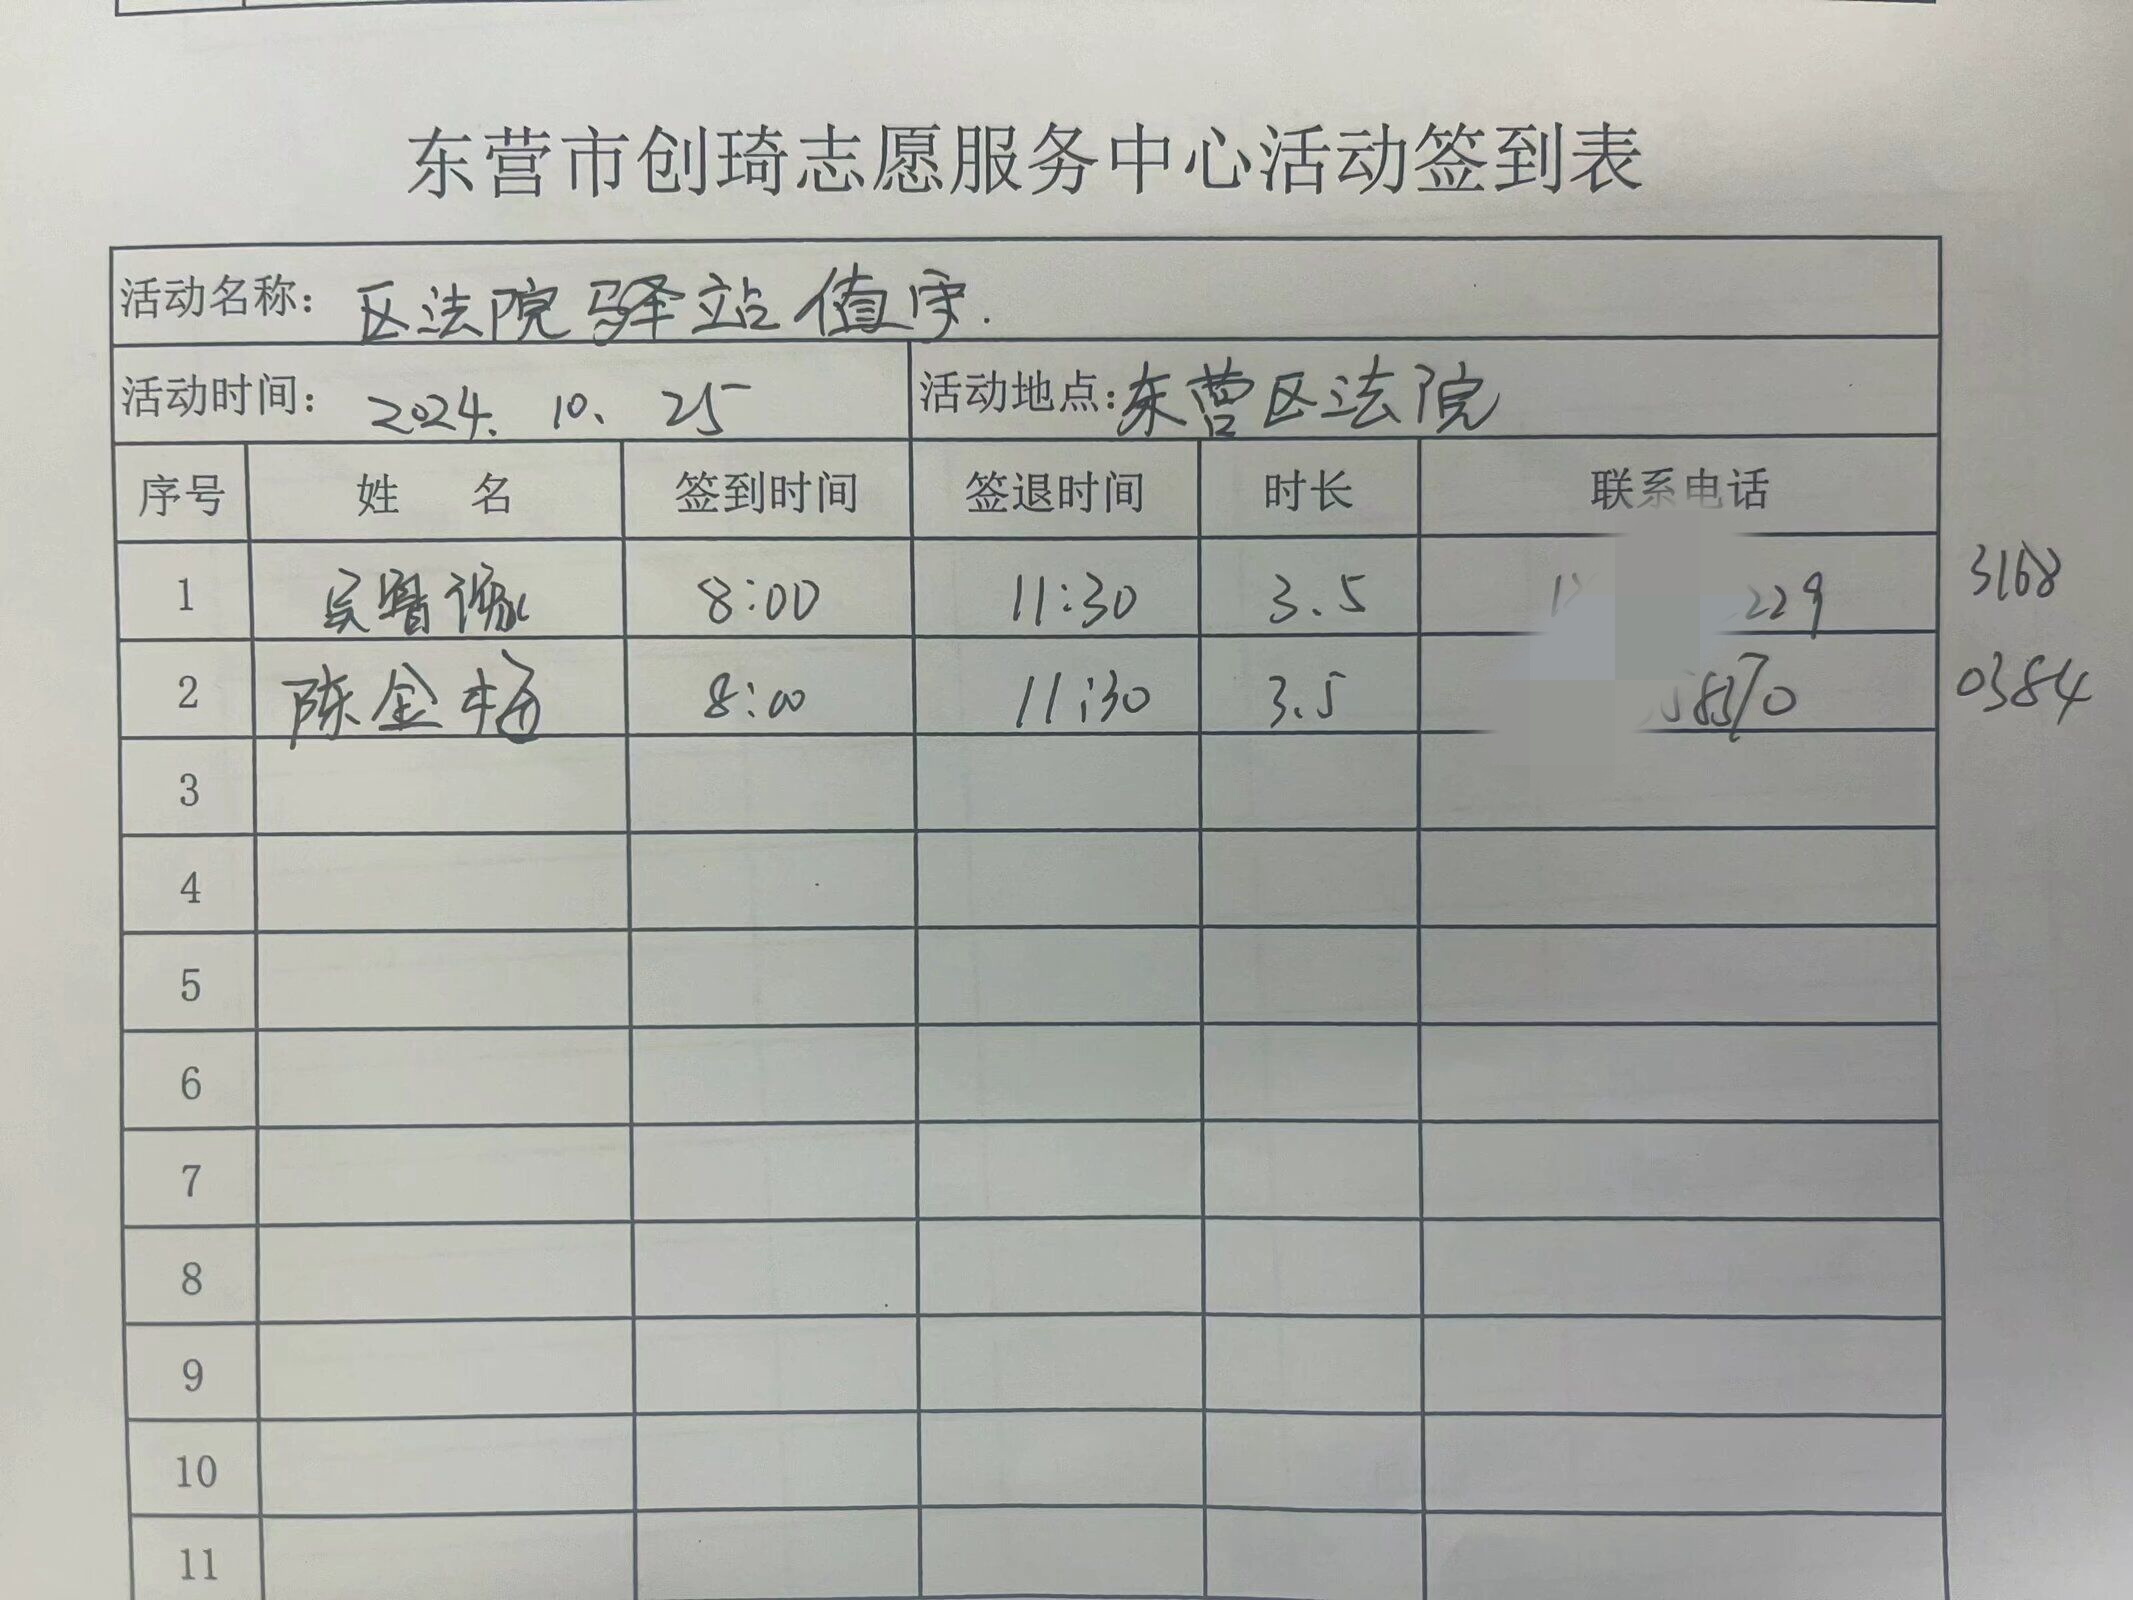 东营市创琦志愿服务中心活动签到表
活动名称：区法院驿站值守.
活动时间：2024.10.25 活动地点：东营区法院
序号 姓名 签到时间 签退时间 时长 联系电话
1 8:00 11:30 3.5 229 3168
2 陈金梅 8:00 11:30 3.5 8370 0384
3
4
5
6
7
8
9
10
11